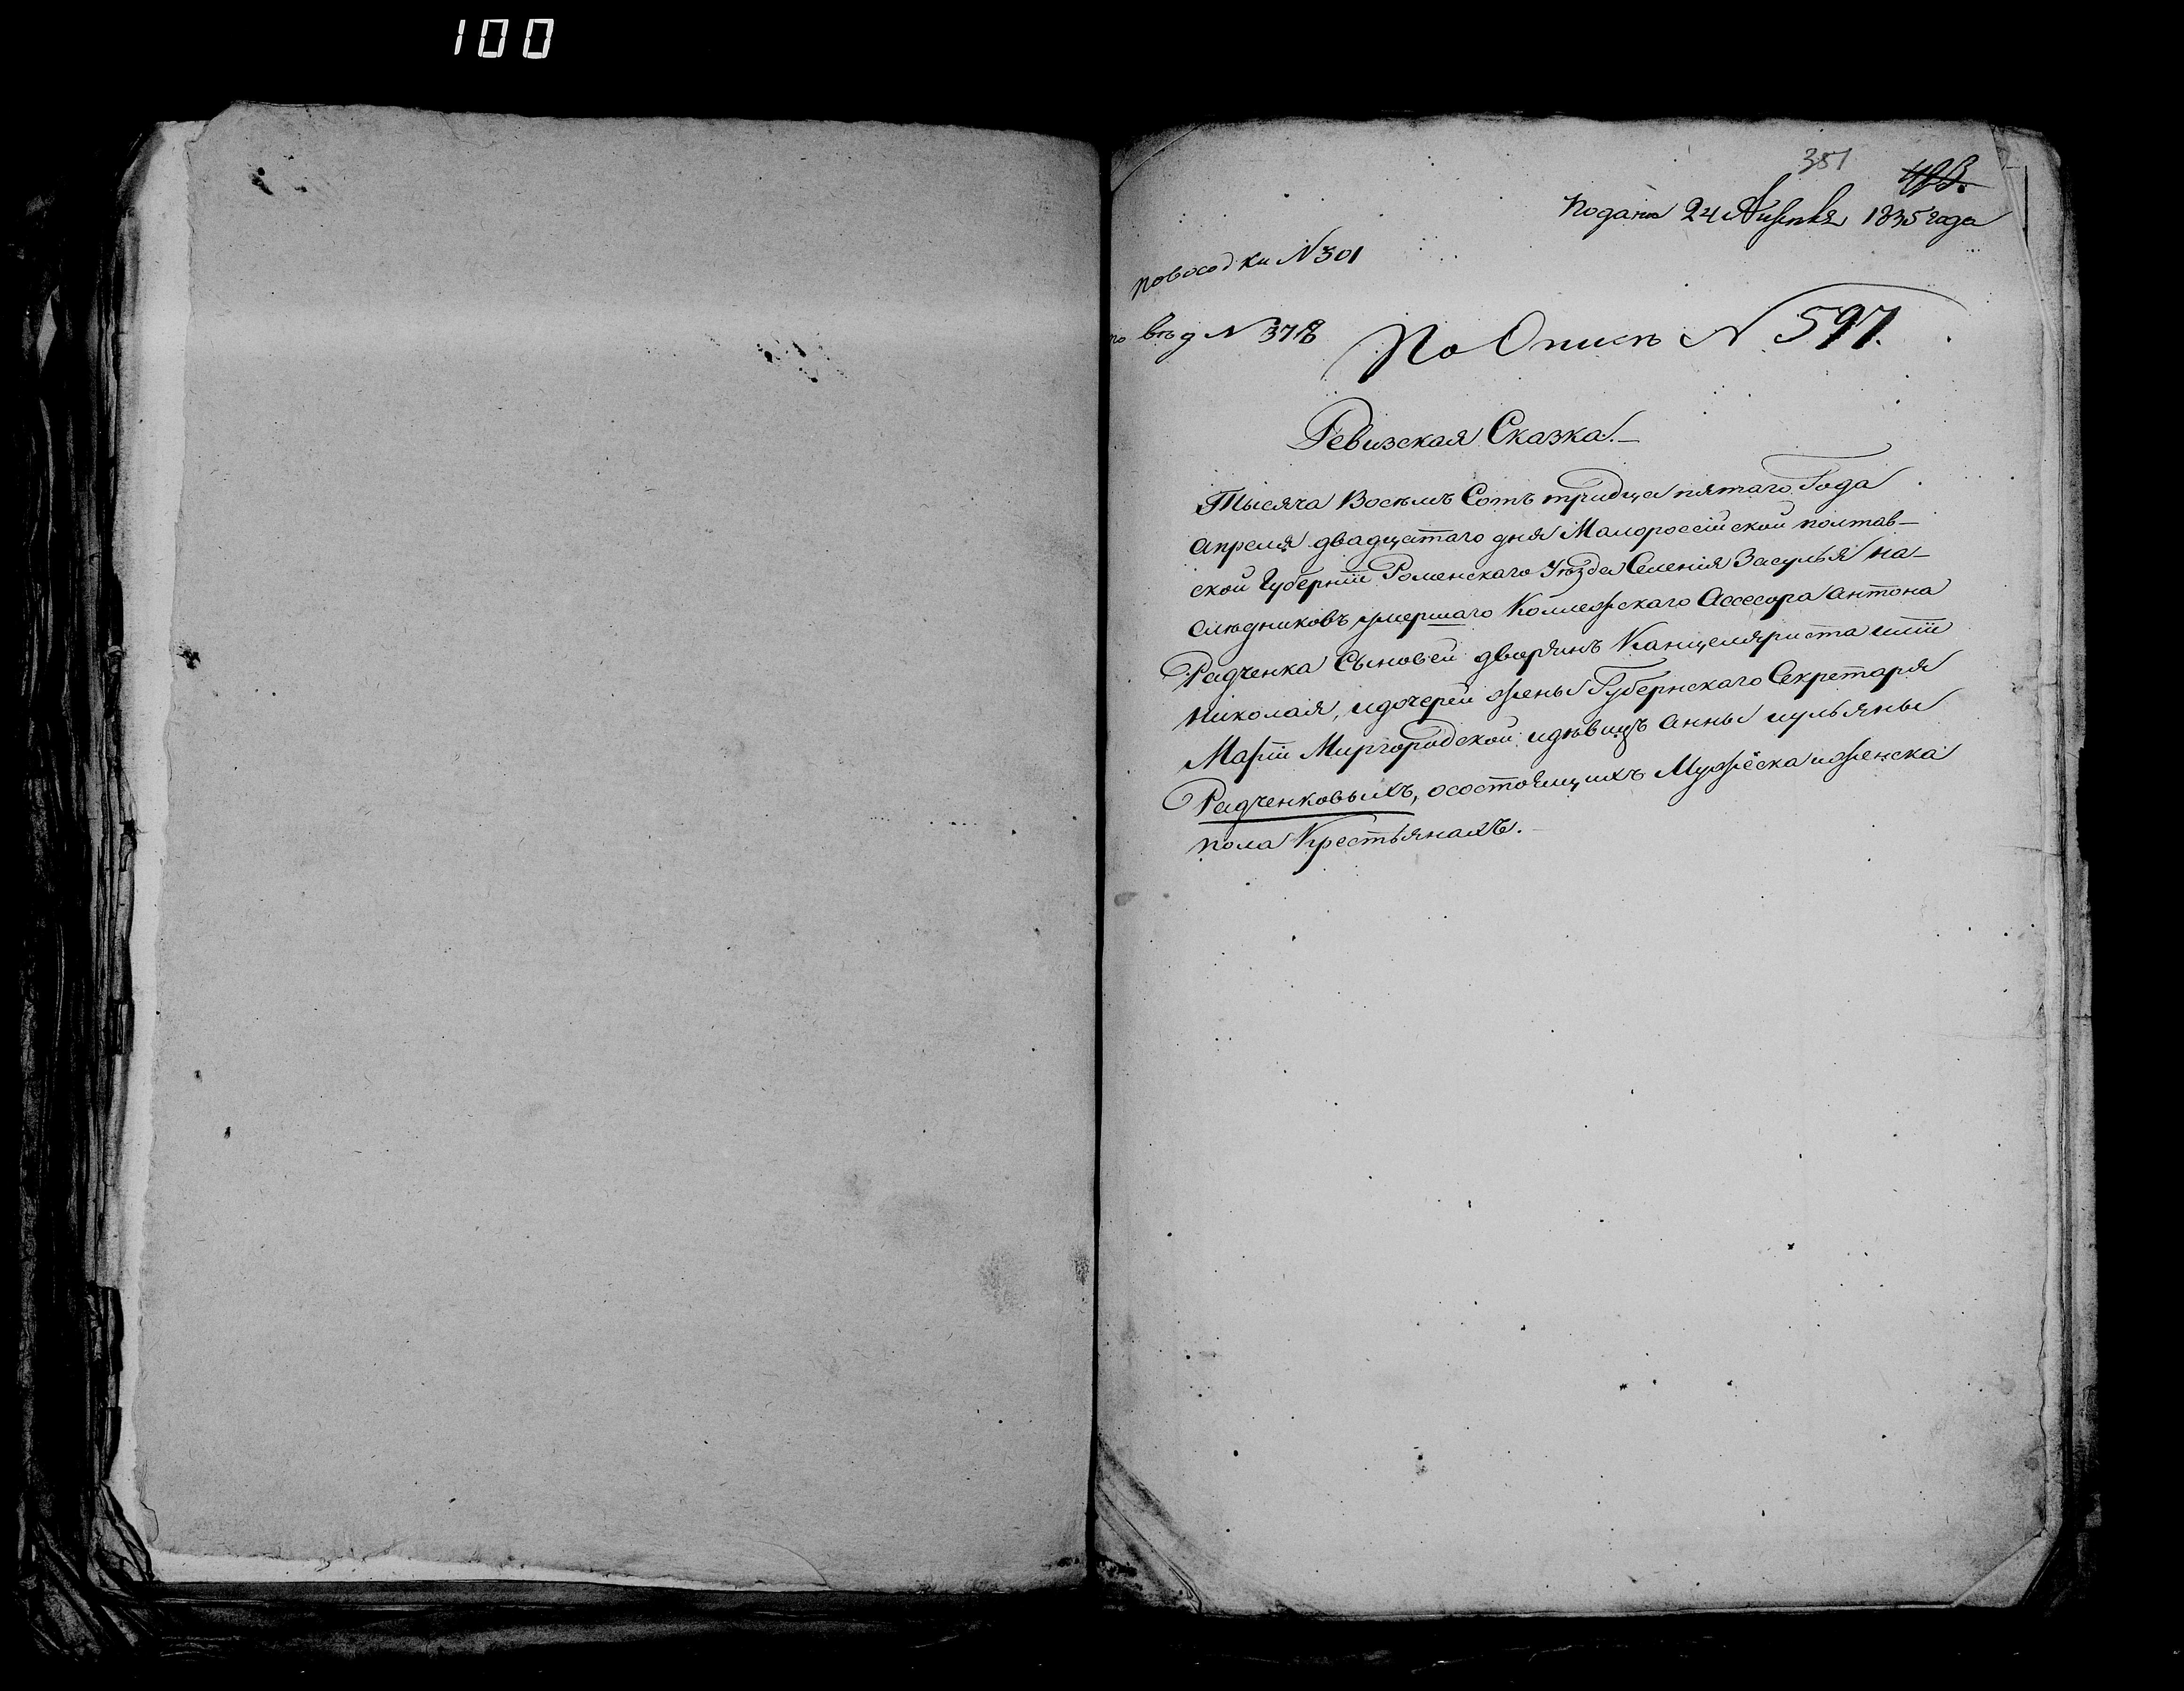 100
351
Подана 24 Апреля 1835 года
по восодки N 301
по вѣд N 378
По Описи N 597.
Ревизская Сказка.
Тысяча Восемь Сотъ тридца пятаго Года
апреля двадцатаго дня Малороссійской полтав-
ской Губерніи Роменскаго Уѣзда Селенія Засулья на-
слѣдниковъ умершаго Коллежскаго Ассесора антона
Радченка Сыновей дворянъ Канцеляриста иліи
николая, идочерей жены Губернскаго Секретаря
Маріи Миргородской идѣвицъ анны иульяны
Радченковыхъ, осостоящихъ Мужеска иженска
пола Крестьянахъ.